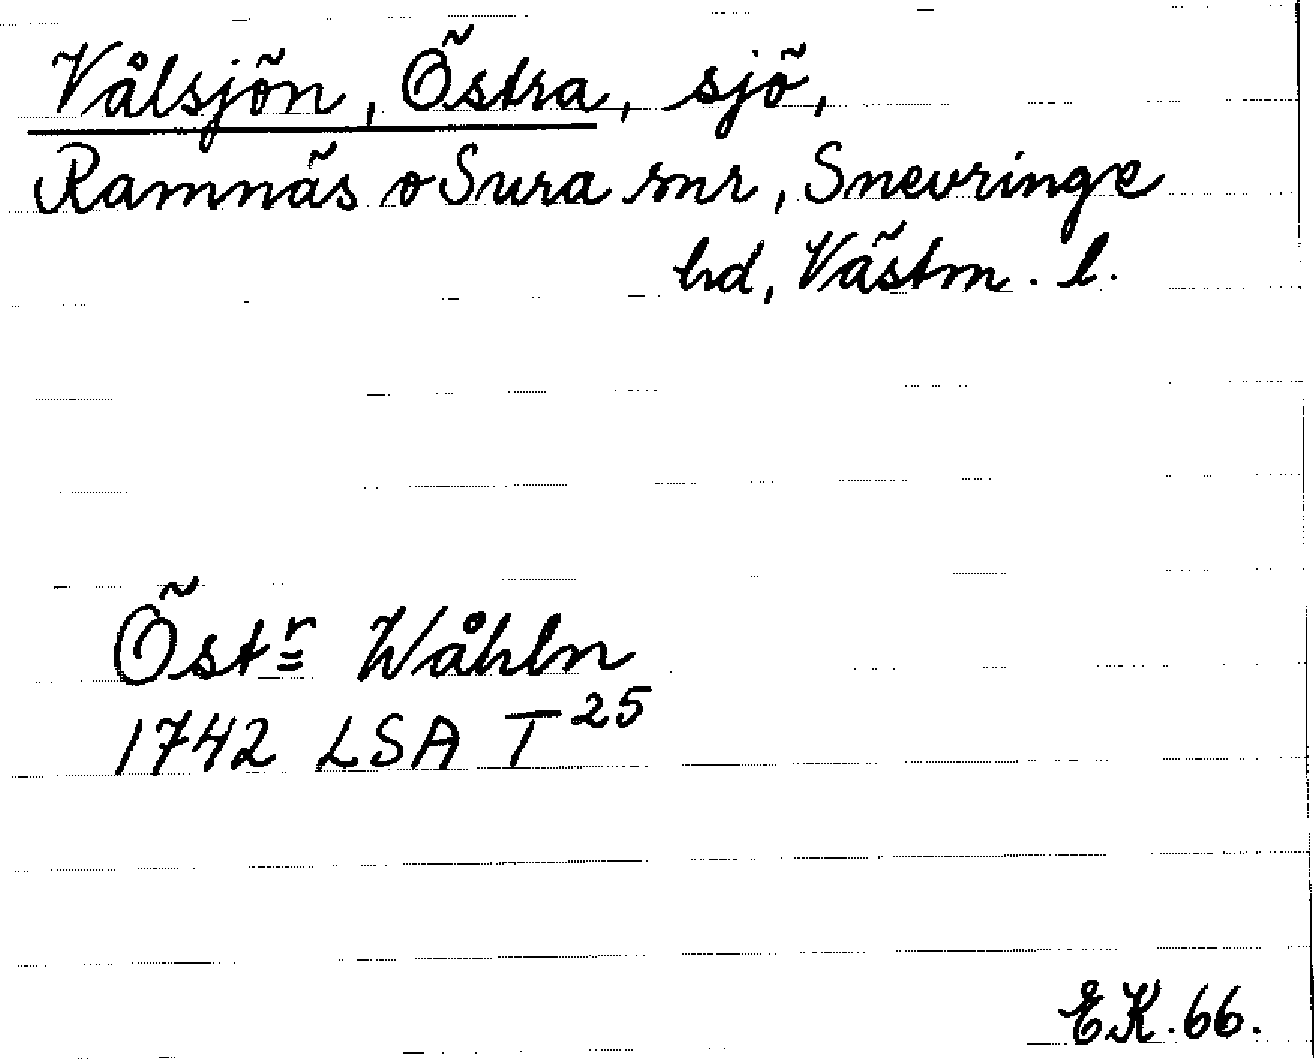 Vålsjön, Östra, sjö,
Ramnäs o Sura snr, Snevringe
hd, Västm. l.
Östr Wåhln
1742 LSA T25
EK.66.